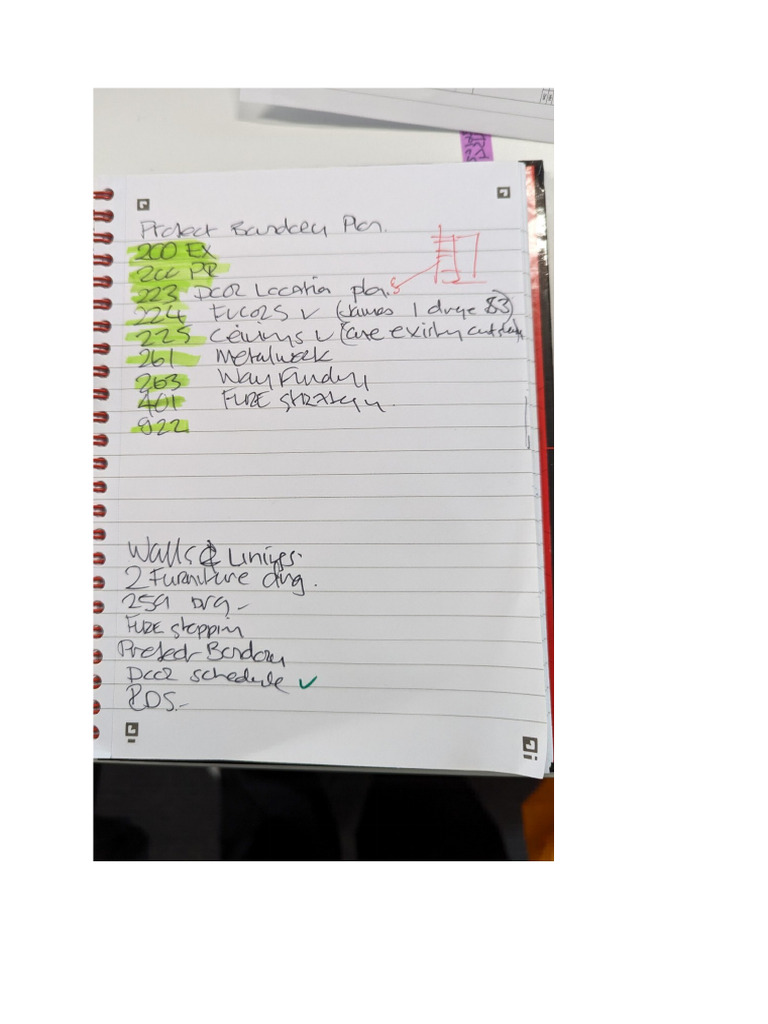 Project Boundary Plan.
200 EX
200 PR
223 Door Location plan.
224 Floors ✓ (James 1 drge 83)
225 Ceilings ✓ (are existing
261 Metalwork
263 Way Finding
401 FIRE Strategy
922
Walls & Linings.
2 Furniture drg.
259 DRG-
FIRE stopping
Project Boundary
Door schedule ✓